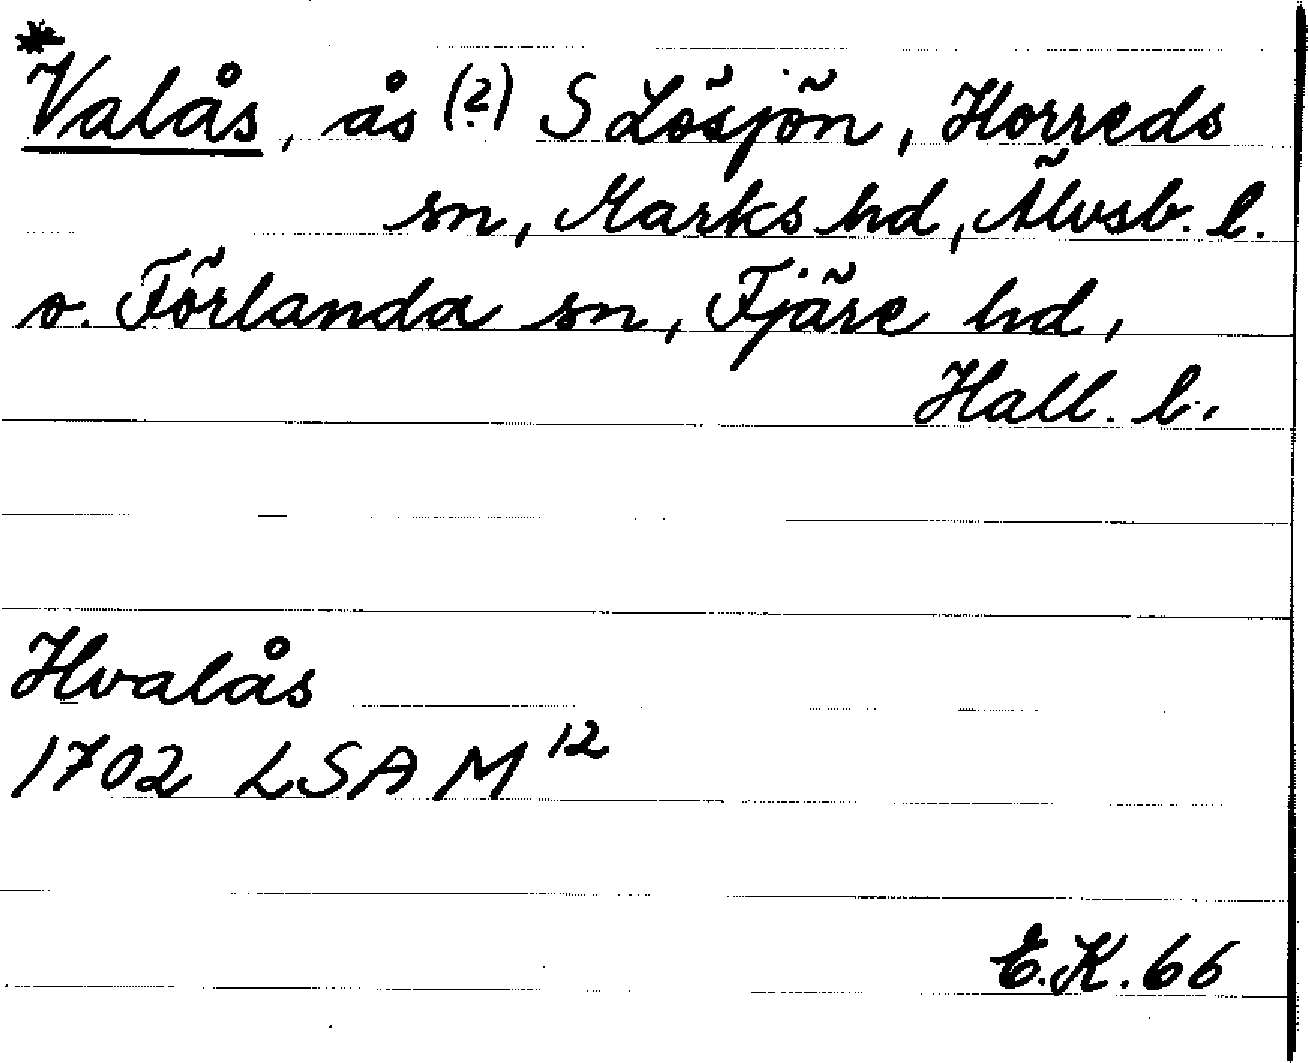 *Valås, ås (?) S Lösjön, Horreds
sn, Marks hd, Älvsb. l.
o. Förlanda sn, Fjäre hd,
Hall. l.
Hvalås
1702 LSA M 12
E.K. 66